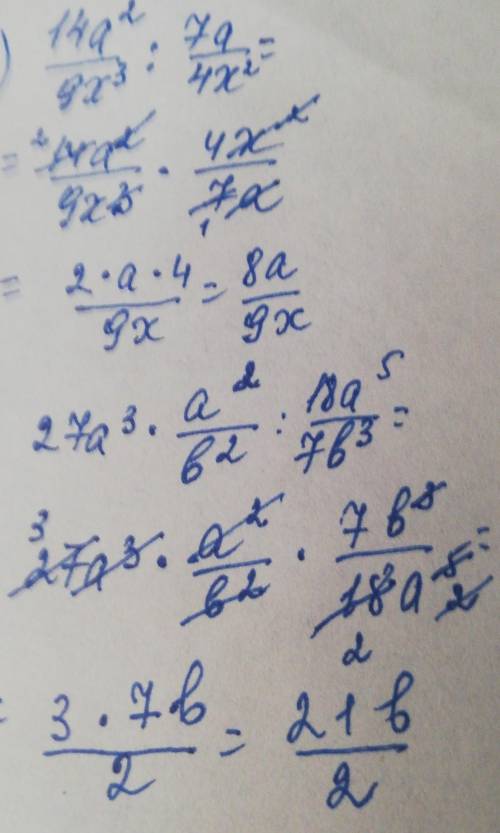 ) 14a²/9x³ : 7a/4x² =
= ²14a²/9x³ · 4x²/₁7a
= 2·a·4/9x = 8a/9x
27a³ · a²/b² : 18a⁵/7b³ =
³27a³ · a²/b² · 7b³/18a⁵ 2 =
2
= 3·7b/2 = 21b/2